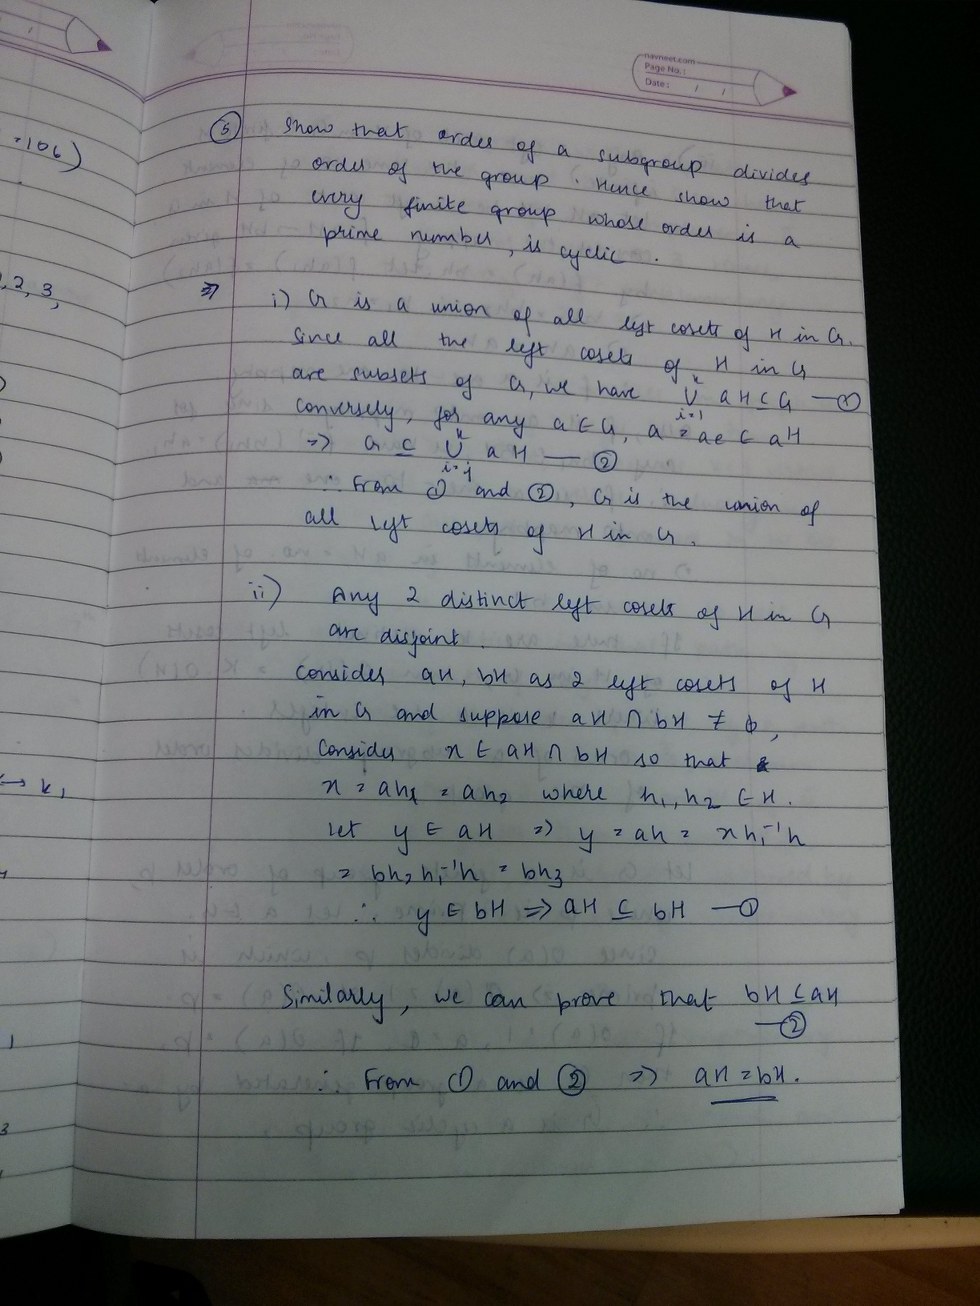 navneet.com
Page No.:
Date: / /
= 106)
, 2, 3,
→ k,
1
3
⑤ Show that order of a subgroup divides
order of the group. Hence show that
every finite group whose order is a
prime number, is cyclic.
⇒ i) G is a union of all left cosets of H in G.
Since all the left cosets of H in G
are subsets of G, we have ∪ᵏᵢ₌₁ aH ⊆ G —①
conversely, for any a ∈ G, a = ae ∈ aH
⇒ G ⊆ ∪ᵏᵢ₌₁ aH — ②
∴ From ① and ②, G is the union of
all left cosets of H in G.
ii) Any 2 distinct left cosets of H in G
are disjoint.
Consider aH, bH as 2 left cosets of H
in G and suppose aH ∩ bH ≠ ϕ,
Consider x ∈ aH ∩ bH so that
x = ah₁ = ah₂ where h₁, h₂ ∈ H.
Let y ∈ aH ⇒ y = ah = xh₁⁻¹h
= bh₂h₁⁻¹h = bh₃
∴ y ∈ bH ⇒ aH ⊆ bH —①
Similarly, we can prove that bH ⊆ aH
—②
∴ From ① and ② ⇒ aH = bH.